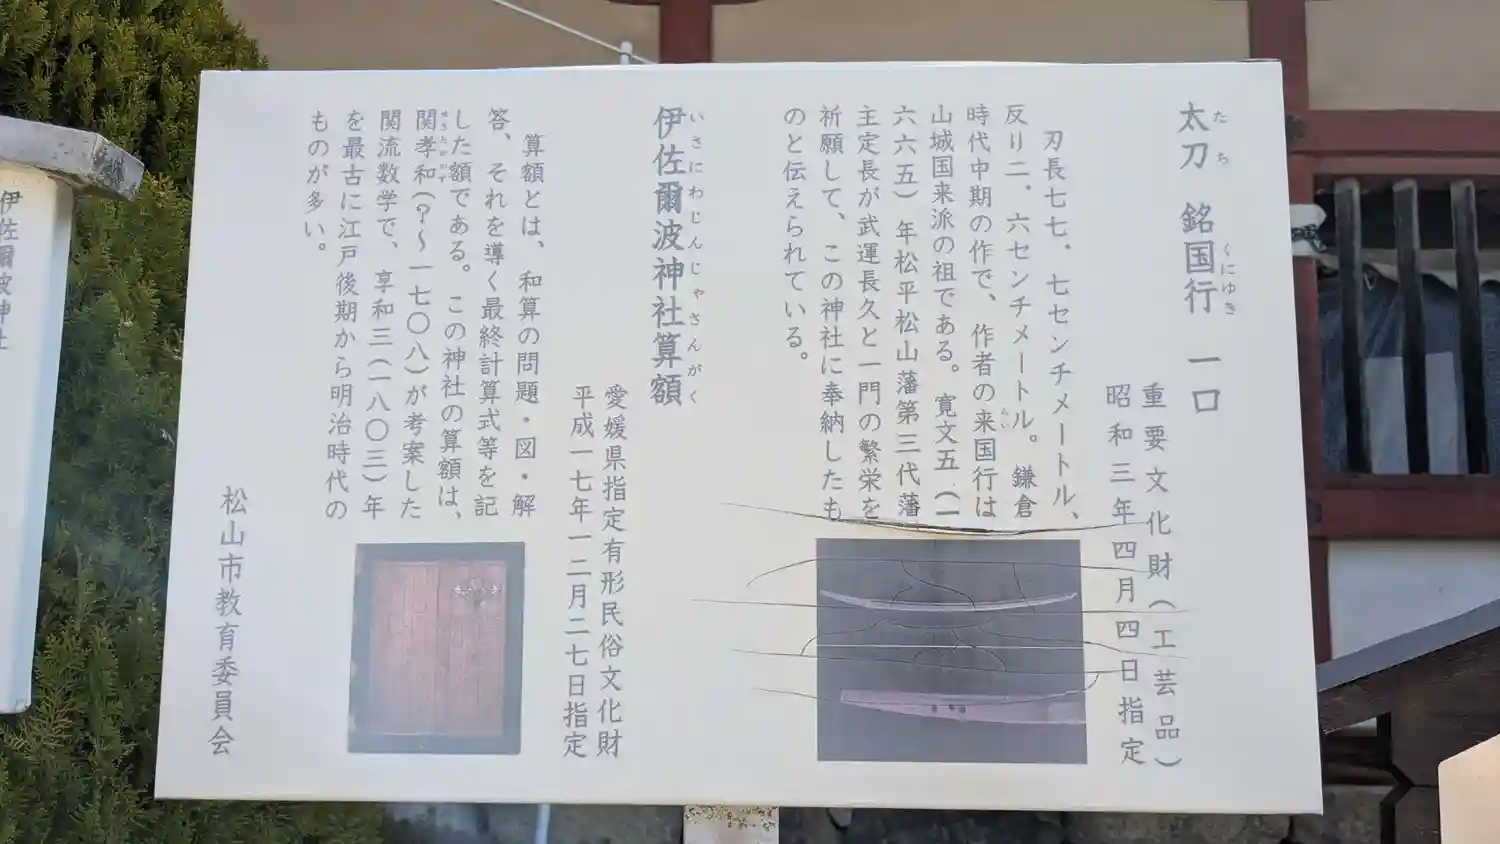 太刀 銘国行 一口
たち くにゆき
重要文化財(工芸品)
昭和三年四月四日指定
刃長七七.七センチメートル、
反り二.六センチメートル。鎌倉
時代中期の作で、作者の来国行は
らい
山城国来派の祖である。寛文五(一
六六五)年松平松山藩第三代藩
主定長が武運長久と一門の繁栄を
祈願して、この神社に奉納したも
のと伝えられている。
伊佐爾波神社算額
いさにわじんじゃさんがく
愛媛県指定有形民俗文化財
平成一七年一二月二七日指定
算額とは、和算の問題・図・解
答、それを導く最終計算式等を記
した額である。この神社の算額は、
関孝和(?~一七〇八)が考案した
せきたかかず
関流数学で、享和三(一八〇三)年
を最古に江戸後期から明治時代の
ものが多い。
松山市教育委員会
伊佐爾波神社